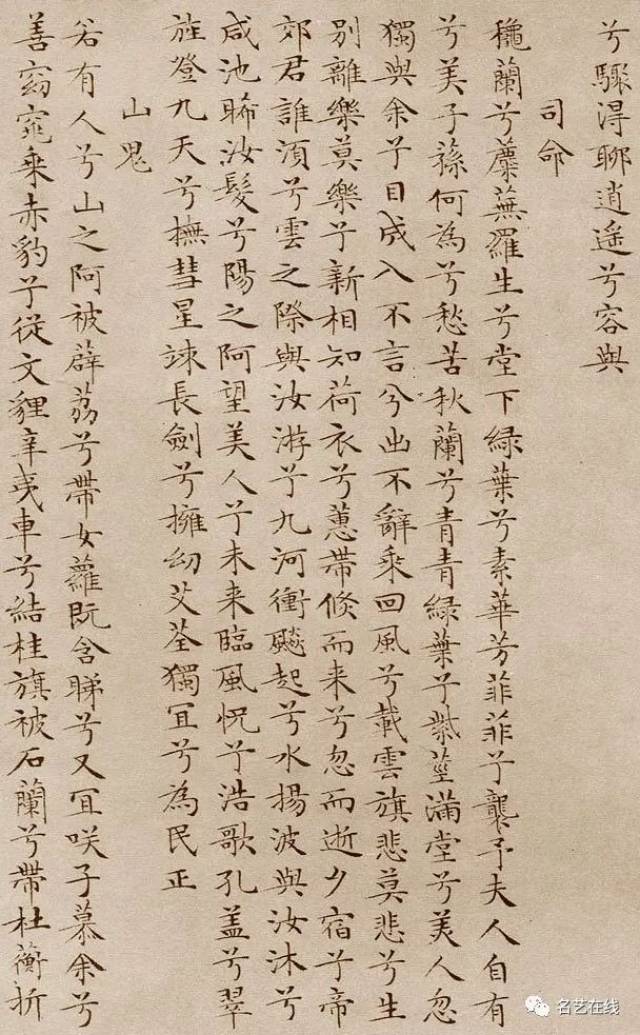 兮驟得聊逍遥兮容與
司命
穐蘭兮蘪蕪羅生兮堂下緑葉兮素華芳菲菲兮襲予夫人自有
兮美子蓀何為兮愁苦秋蘭兮青青緑葉兮紫莖滿堂兮美人忽
獨與余兮目成入不言兮出不辭乘回風兮載雲旗悲莫悲兮生
別離樂莫樂兮新相知荷衣兮蕙帶倏而来兮忽而逝夕宿兮帝
郊君誰須兮雲之際與汝游兮九河衝飈起兮水揚波與汝沐兮
咸池晞汝髮兮陽之阿望美人兮未来臨風怳兮浩歌孔盖兮翠
旌登九天兮撫彗星竦長劍兮擁幼艾荃獨宜兮為民正
山鬼
若有人兮山之阿被薜荔兮帶女蘿既含睇兮又宜咲子慕余兮
善窈窕乘赤豹兮從文貍辛夷車兮結桂旗被石蘭兮帶杜蘅折
名艺在线